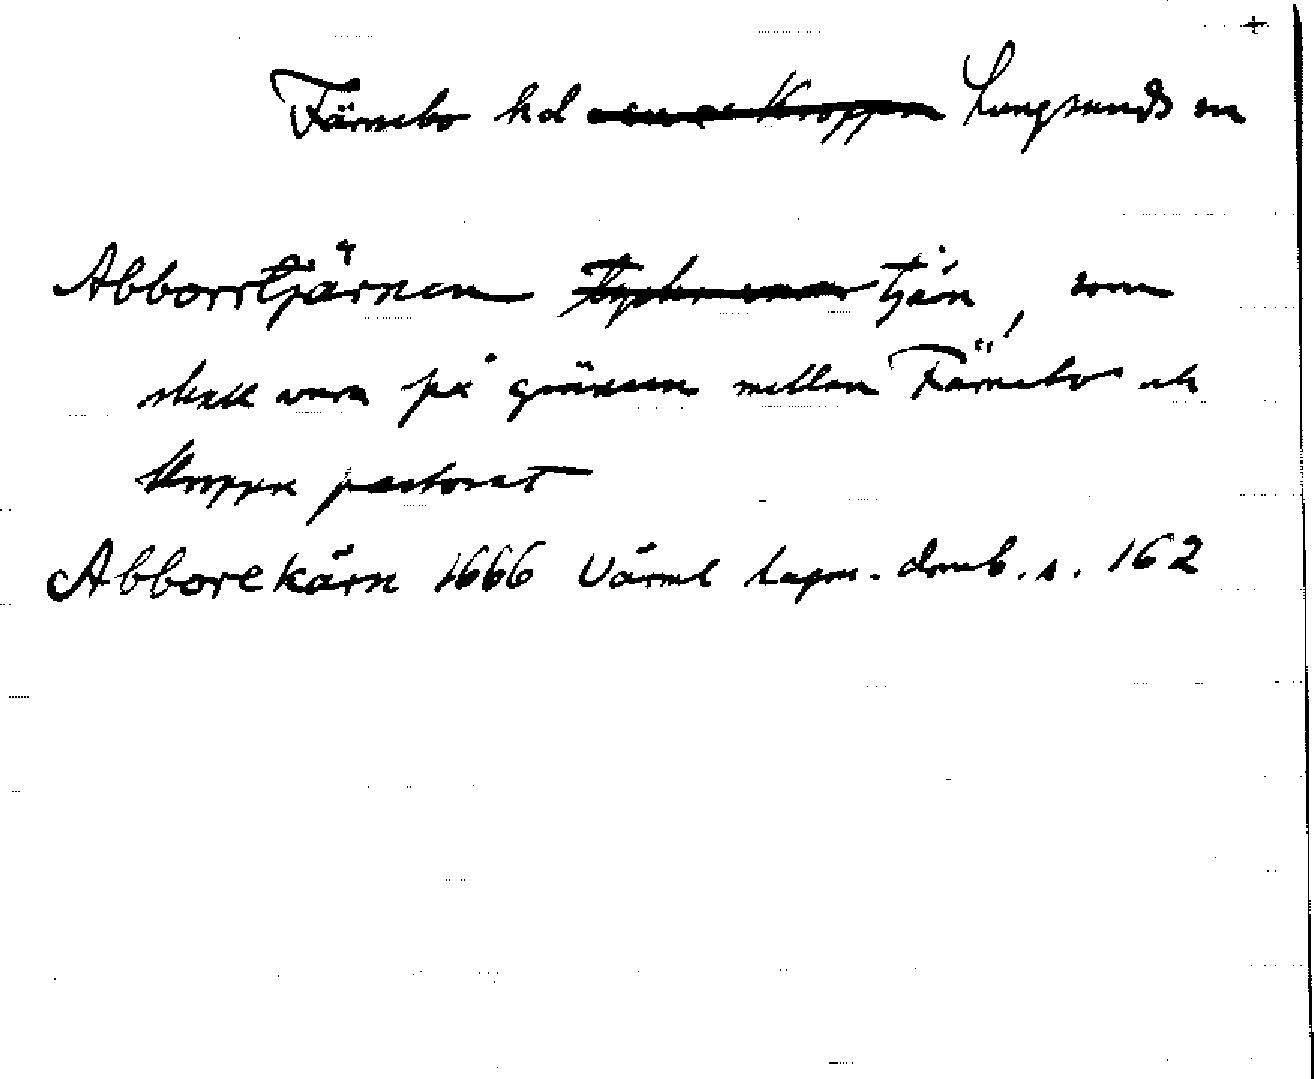 +
Färnebo hd Lungsunds sn
Abborrtjärnen tjän, som
skall vara på gränsen mellan Färnebo och
Kroppa pastorat
Abborekärn 1666 Värml lagm. domb. s. 162